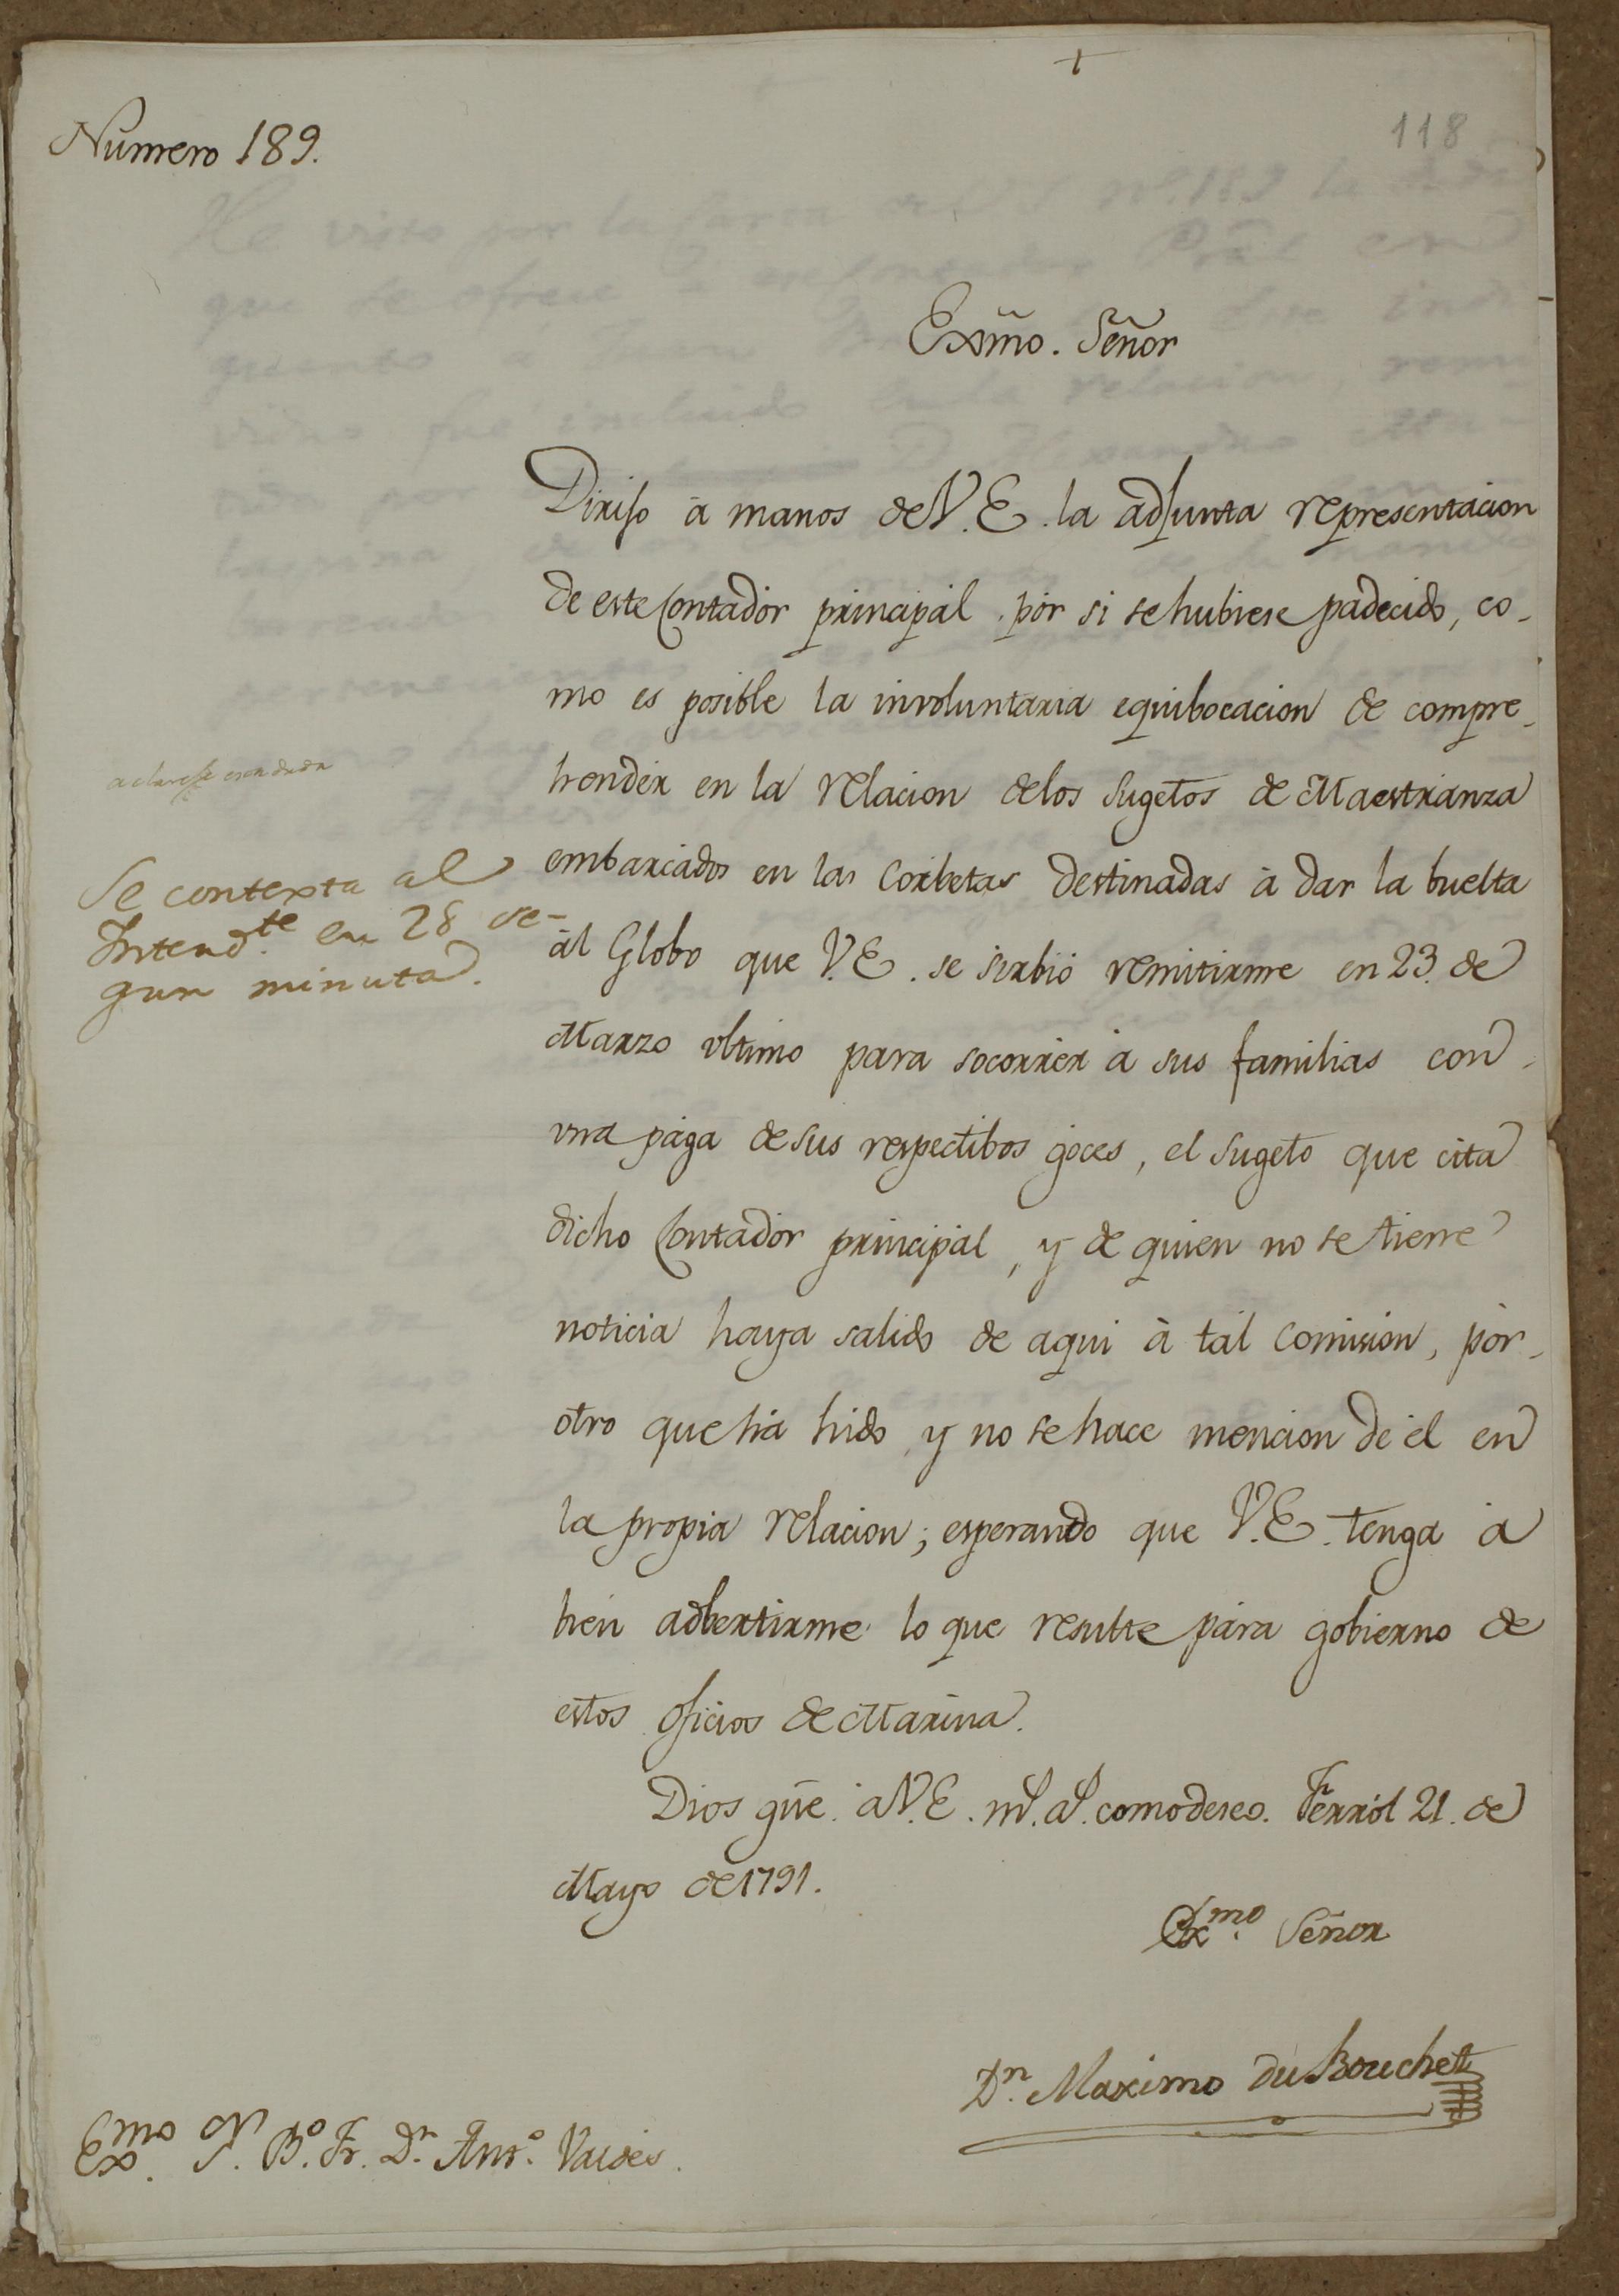 +
118
Número 189.
Exmo. Señor
Dirijo à manos de V.E. la adjunta representacion
de este Contador principal por si se hubiese padecido, co-
mo es posible la involuntaria equibocacion de compre-
hender en la relacion de los sugetos de Maestranza
embarcados en las Corbetas destinadas à dar la buelta
àl Globo que V.E. se sirbió remitirme en 23. de
Marzo ultimo para socorrer à sus familias con
una paga de sus respectibos goces, el sugeto que cita
dicho Contador principal, y de quien no se tiene
noticia haya salido de aqui à tal comision, por
otro que ha hido y no se hace mencion de él en
la propia relacion; esperando que V.E. tenga à
bien adbertirme lo que resulte para gobierno de
estos oficios de Marina.
Dios gue. à V.E. ms. as. como deseo. Ferrol 21. de
Mayo de 1791.
Exmo. Señor
Dn. Maximo du Bouchet
Exmo. Sr. Bo. Fr. Dn. Anto. Valdés.
aclarese esta duda
Se contexta al
Intendte. en 28 se-
gun minuta.